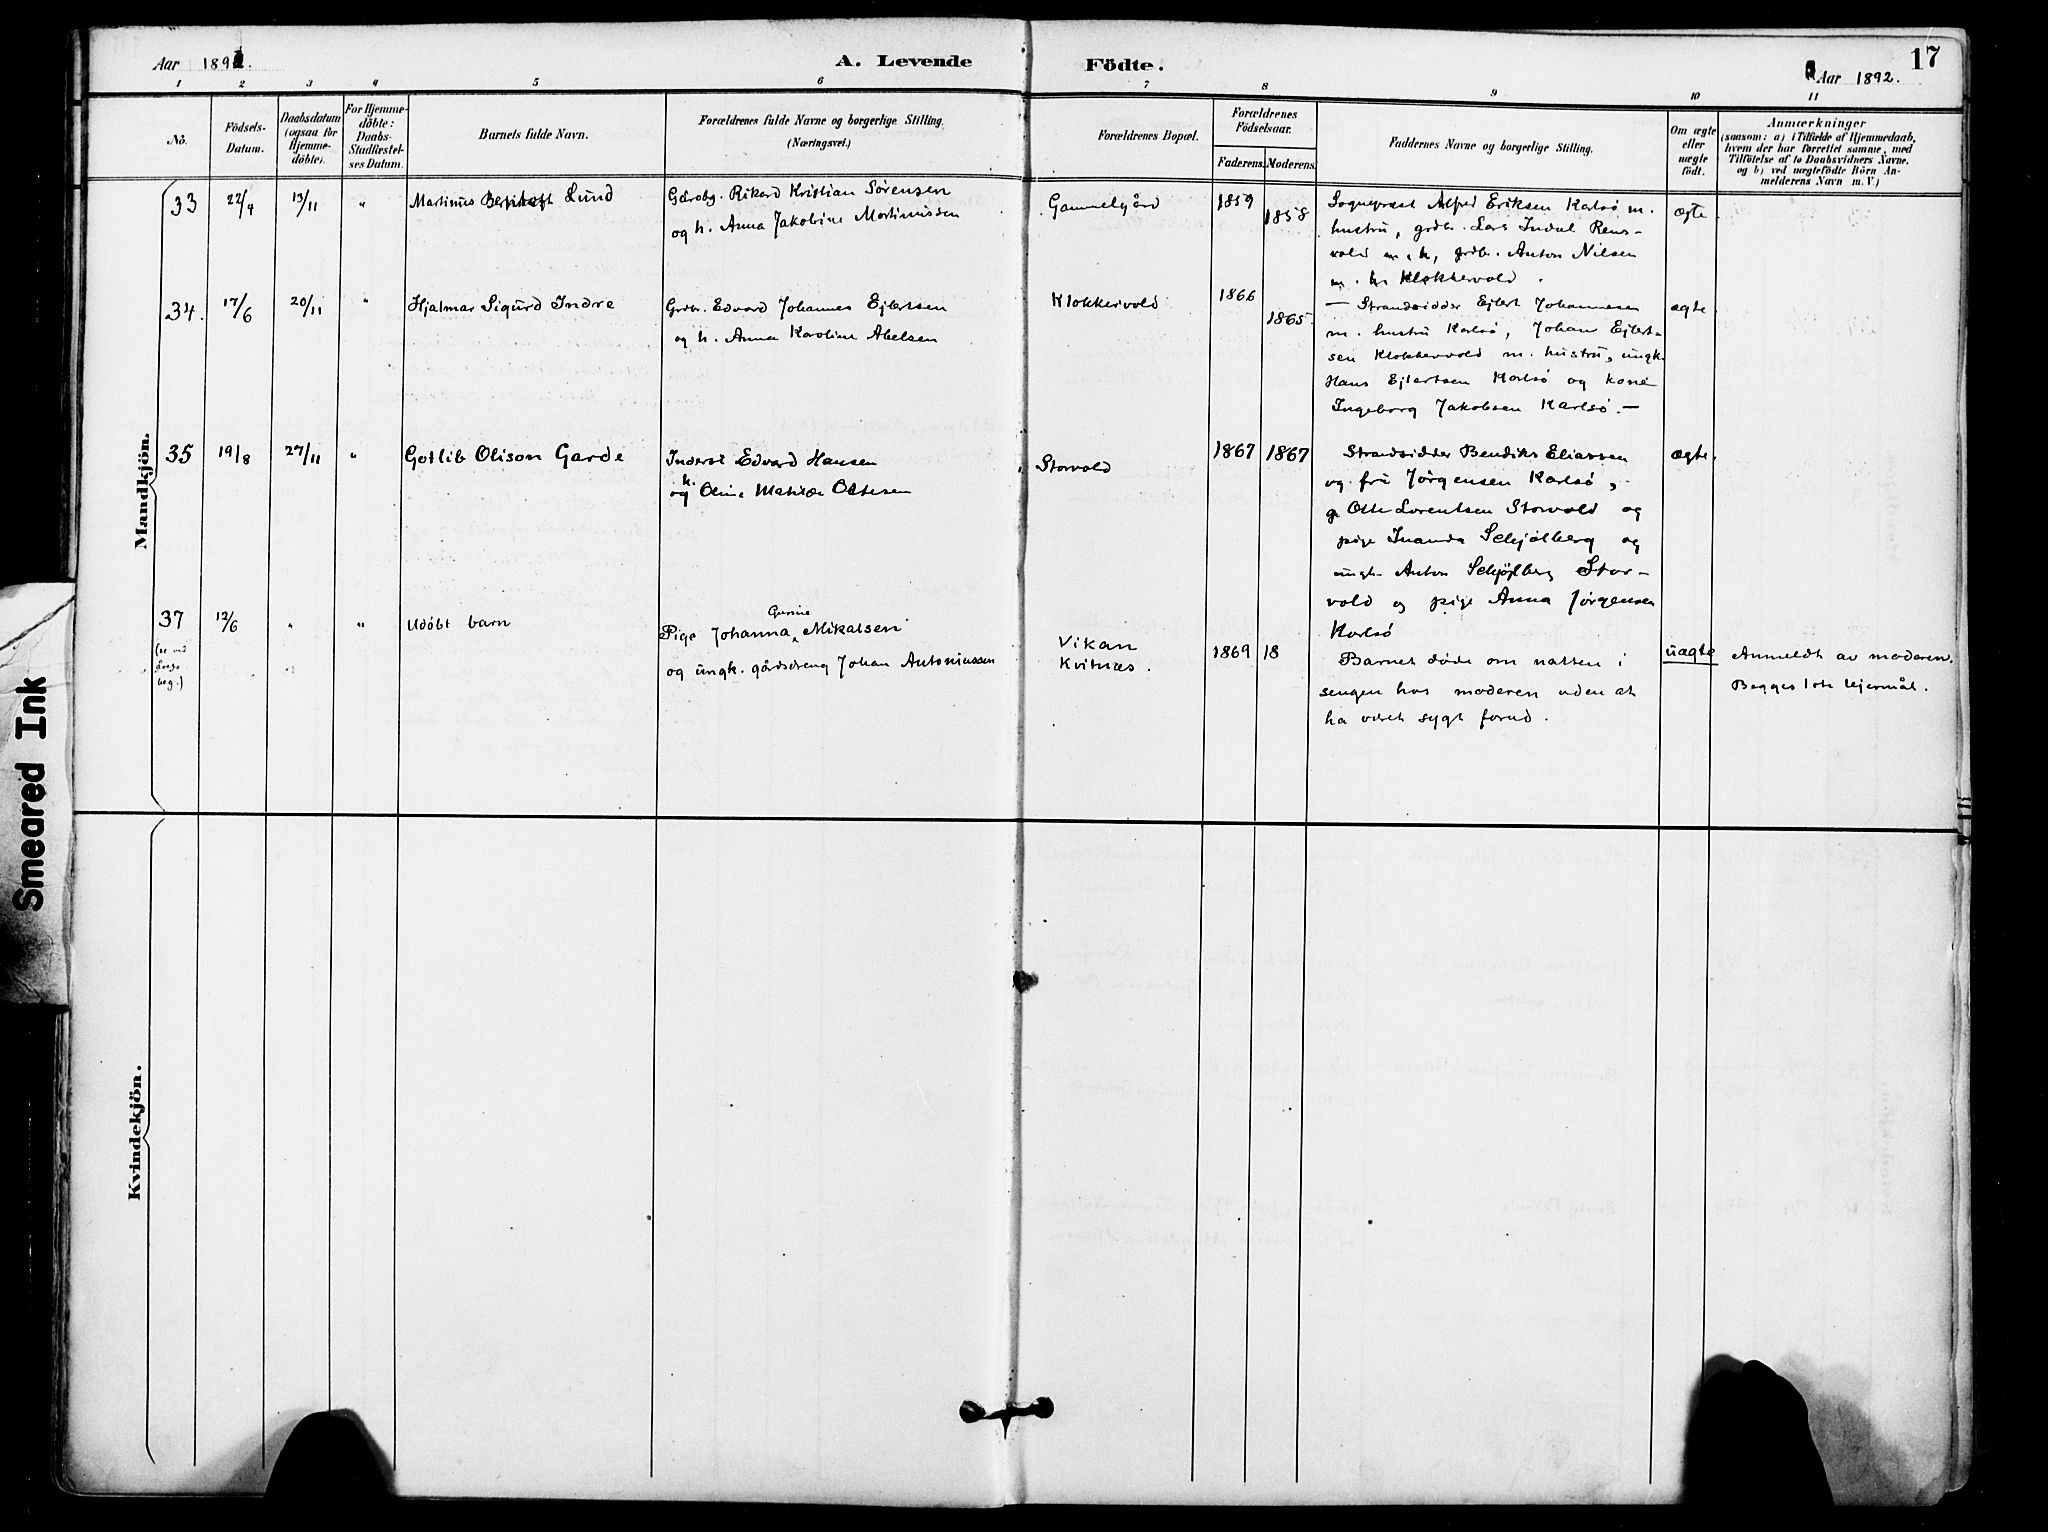 Aar 1892.
A. Levende
Födte.
Aar 1892.
17
1 2 3 4 5 6 7 8 9 10 11
No.
Födsels-
Datum.
Daabsdatum
(ogsaa for
Hjemme-
döbte).
For Hjemme-
döbte:
Daabs-
Stadfæstel-
ses Datum.
Barnets fulde Navn.
Forældrenes fulde Navne og borgerlige Stilling.
(Næringsvei.)
Forældrenes Bopæl.
Forældrenes
Födselsaar.
Faderens.
Moderens.
Faddernes Navne og borgerlige Stilling.
Om ægte
eller
uægte
födt.
Anmærkninger
(saasom: a) i Tilfælde af Hjemmedaab,
hvem der har forrettet samme, med
Tilföielse af to Daabsvidners Navne.
og b) ved uægtefödte Börn An-
melderens Navn m. V.)
Mandkjön.
33
22/4
13/11
"
Martinus Lund
Gårdbg. Rikard Kristian Sörensen
og h. Anna Jakobine Martinussen
Gammelgård
1859
1858
Sogneprest Alfred Eriksen Karlsö m.
hustru, grdbr. Lars Indal Rens-
vold m. h, grdbr. Anton Nilsen
m. h. Klokkervold.
ægte.
34.
17/6
20/11
"
Hjalmar Sigurd Indre
Grdbr. Edvard Johannes Ejlertsen
og h. Anna Karoline Abelsen
Klokkervold
1866
1865.
— Strandsidder Ejlert Johannesen
m. hustru Karlsö, Johan Ejlert-
sen Klokkervold m. hustru, ungk.
Hans Ejlertsen Karlsö og kone
Ingeborg Jakobsen Karlsö. —
ægte.
35
19/8
27/11
"
Gotlib Olison Garde
Inderst Edvard Hansen
og h. Oline Matilde Ottesen
Storvold
1867
1867
Strandsidder Bendiks Eliassen
og fru Jörgensen Karlsö,
g Otte Lorentsen Storvold og
pige Inanda Schjölberg og
ungk. Anton Schjölberg Stor-
vold og pige Anna Jörgensen
Karlsö
ægte.
37
(se ved
årets
beg.)
12/6
"
"
Udöbt barn
Pige Johanna Gurine Mikalsen
og ungk. gårdsdreng Johan Antoniussen
Vikan
Kvitnæs.
1869
18
Barnet döde om natten i
sengen hos moderen uden at
ha været sygt forud.
uægte
Anmeldt av moderen.
Begges 1ste lejermål.
Kvindekjön.
Smeared Ink